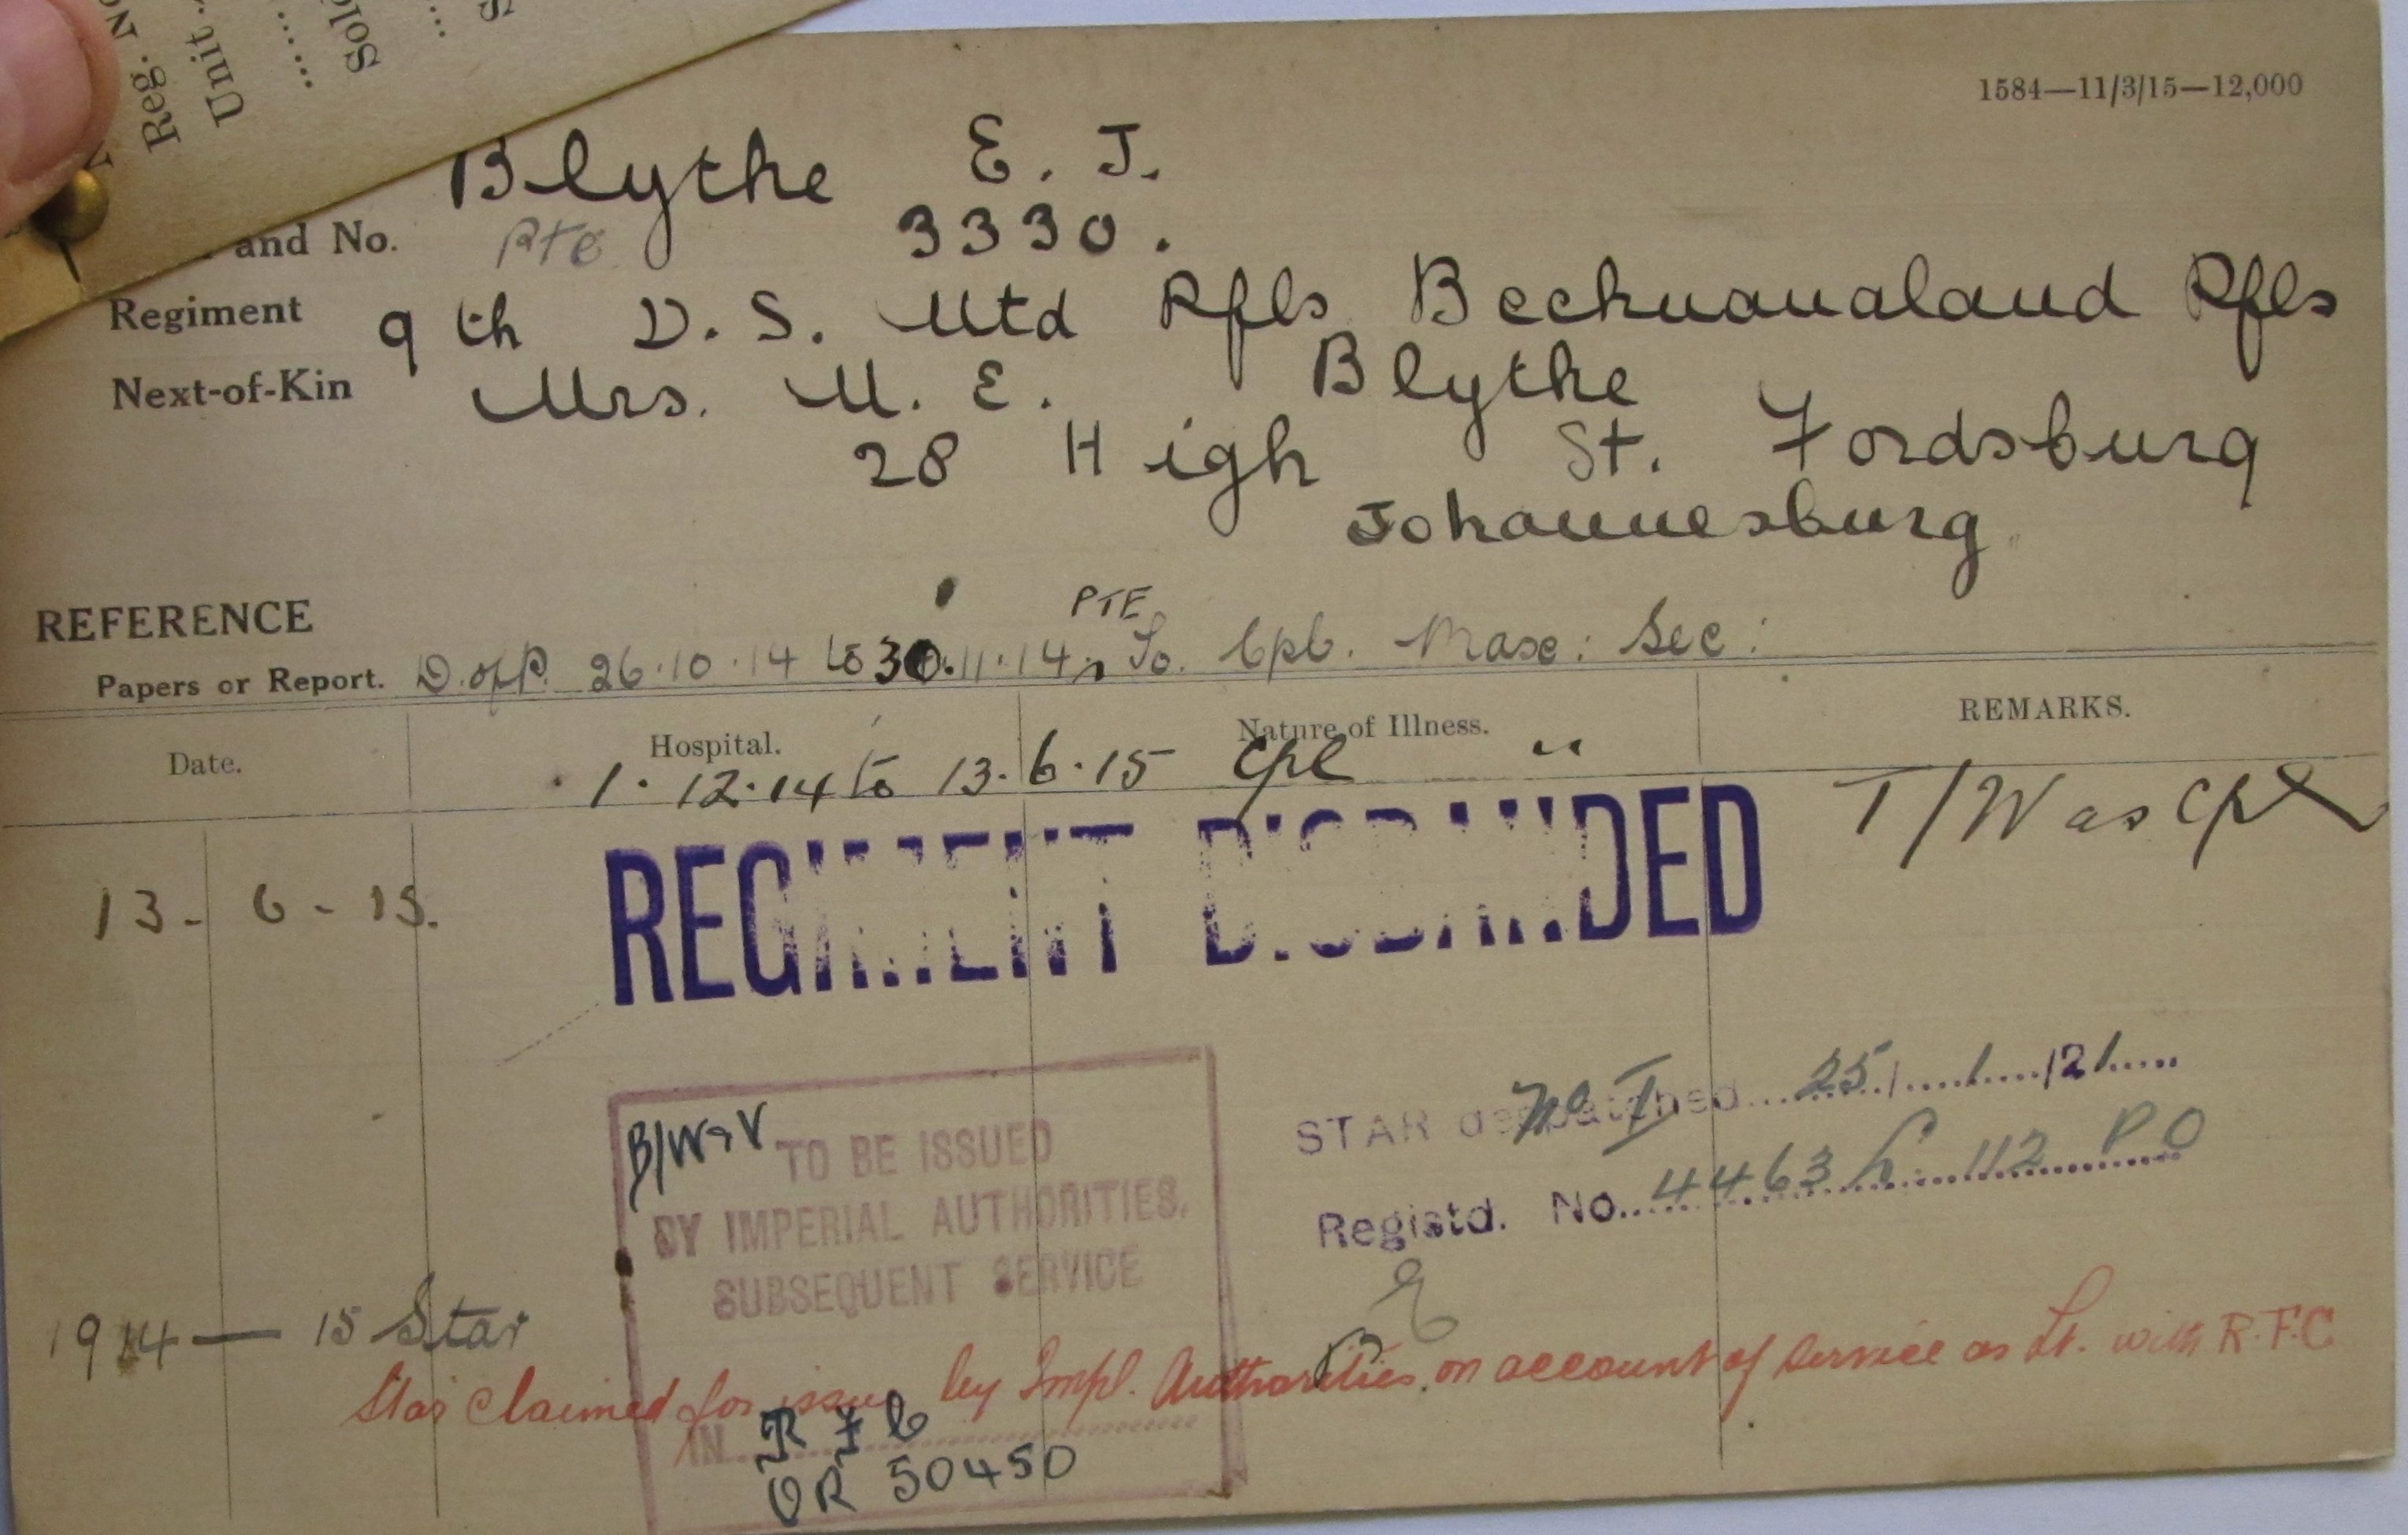 Reg. No
Unit
Sol
1584—11/3/15—12,000
Blythe E. J.
and No. Pte 3330.
Regiment 9th D. S. Mtd Rfls Bechuanaland Rfls
Next-of-Kin Mrs. M. E. Blythe
28 High St. Fordsburg
Johannesburg
REFERENCE
PTE
Papers or Report. D. of P. 26.10.14 to 30.11.14
Date. Hospital. Nature of Illness. REMARKS.
1.12.14 to 13.6.15 Cpl "
T/Was Cpl
13-6-15. REGIMENT DISBANDED
STAR despatched 25/1/21
No I
B/W & V
TO BE ISSUED
BY IMPERIAL AUTHORITIES,
SUBSEQUENT SERVICE
Registd. No. 4463 112 P O
1914—15 Star
Star claimed for issue by Impl. Authorities, on account of service as Lt. with R.F.C
IN R F C
OR 50450